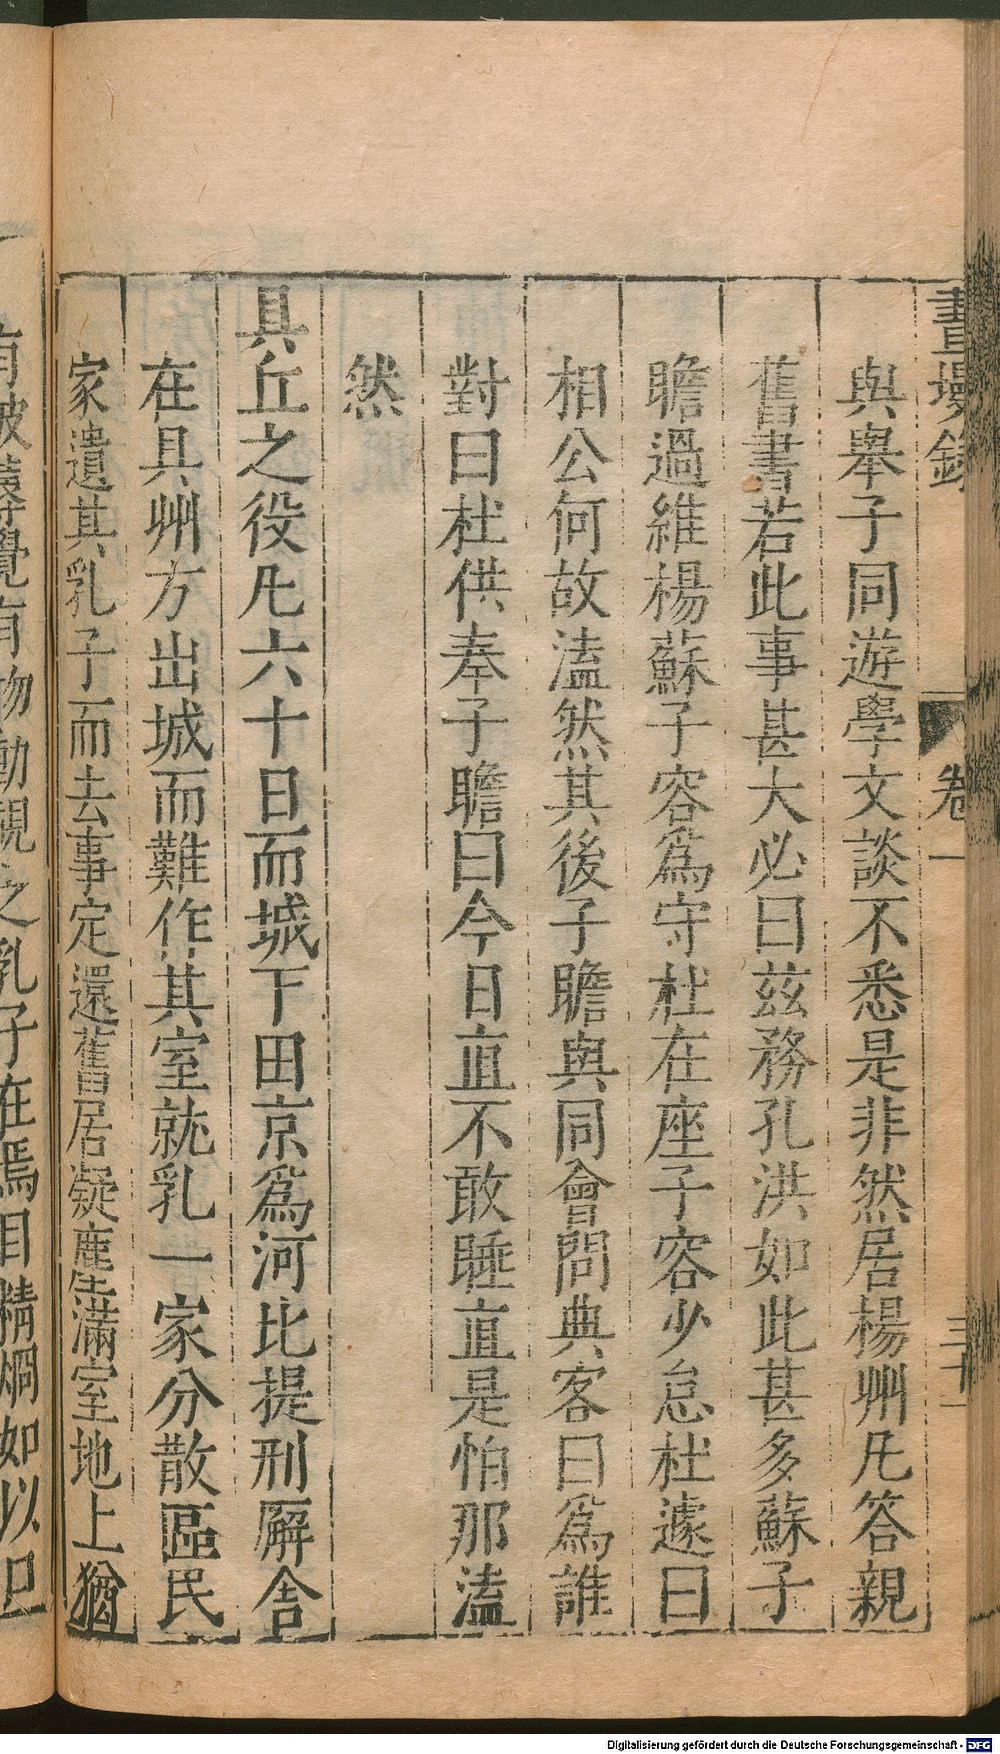 畫墁錄 卷一 三十一
與舉子同遊學文談不悉是非然居楊州凡答親
舊書若此事甚大必曰玆務孔洪如此甚多蘇子
瞻過維楊蘇子容爲守杜在座子容少怠杜遽曰
相公何故溘然其後子瞻與同會問典客曰爲誰
對曰杜供奉子瞻曰今日直不敢睡直是怕那溘
然
具丘之役凡六十日而城下田京爲河比提刑廨舎
在具州方出城而難作其室就乳一家分散區民
家遺其乳子而去事定還舊居凝塵滿室地上猶
物動視之乳子在焉目精烱如以
Digitalisierung gefördert durch die Deutsche Forschungsgemeinschaft - DFG